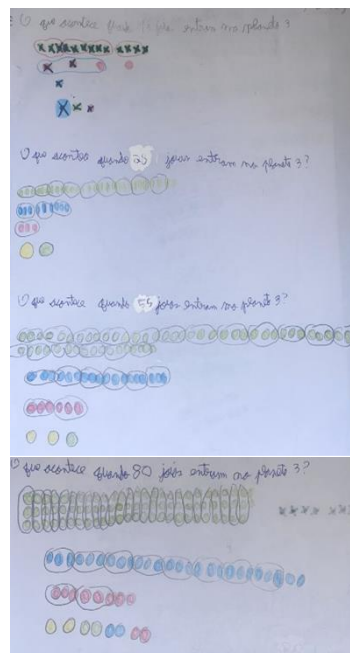 O que acontece entram no planeta 3
O que acontece quando 25 joias entram no planeta 3?
O que acontece quando 55 joias entram no planeta 3?
O que acontece quando 80 joias entram no planeta 3?